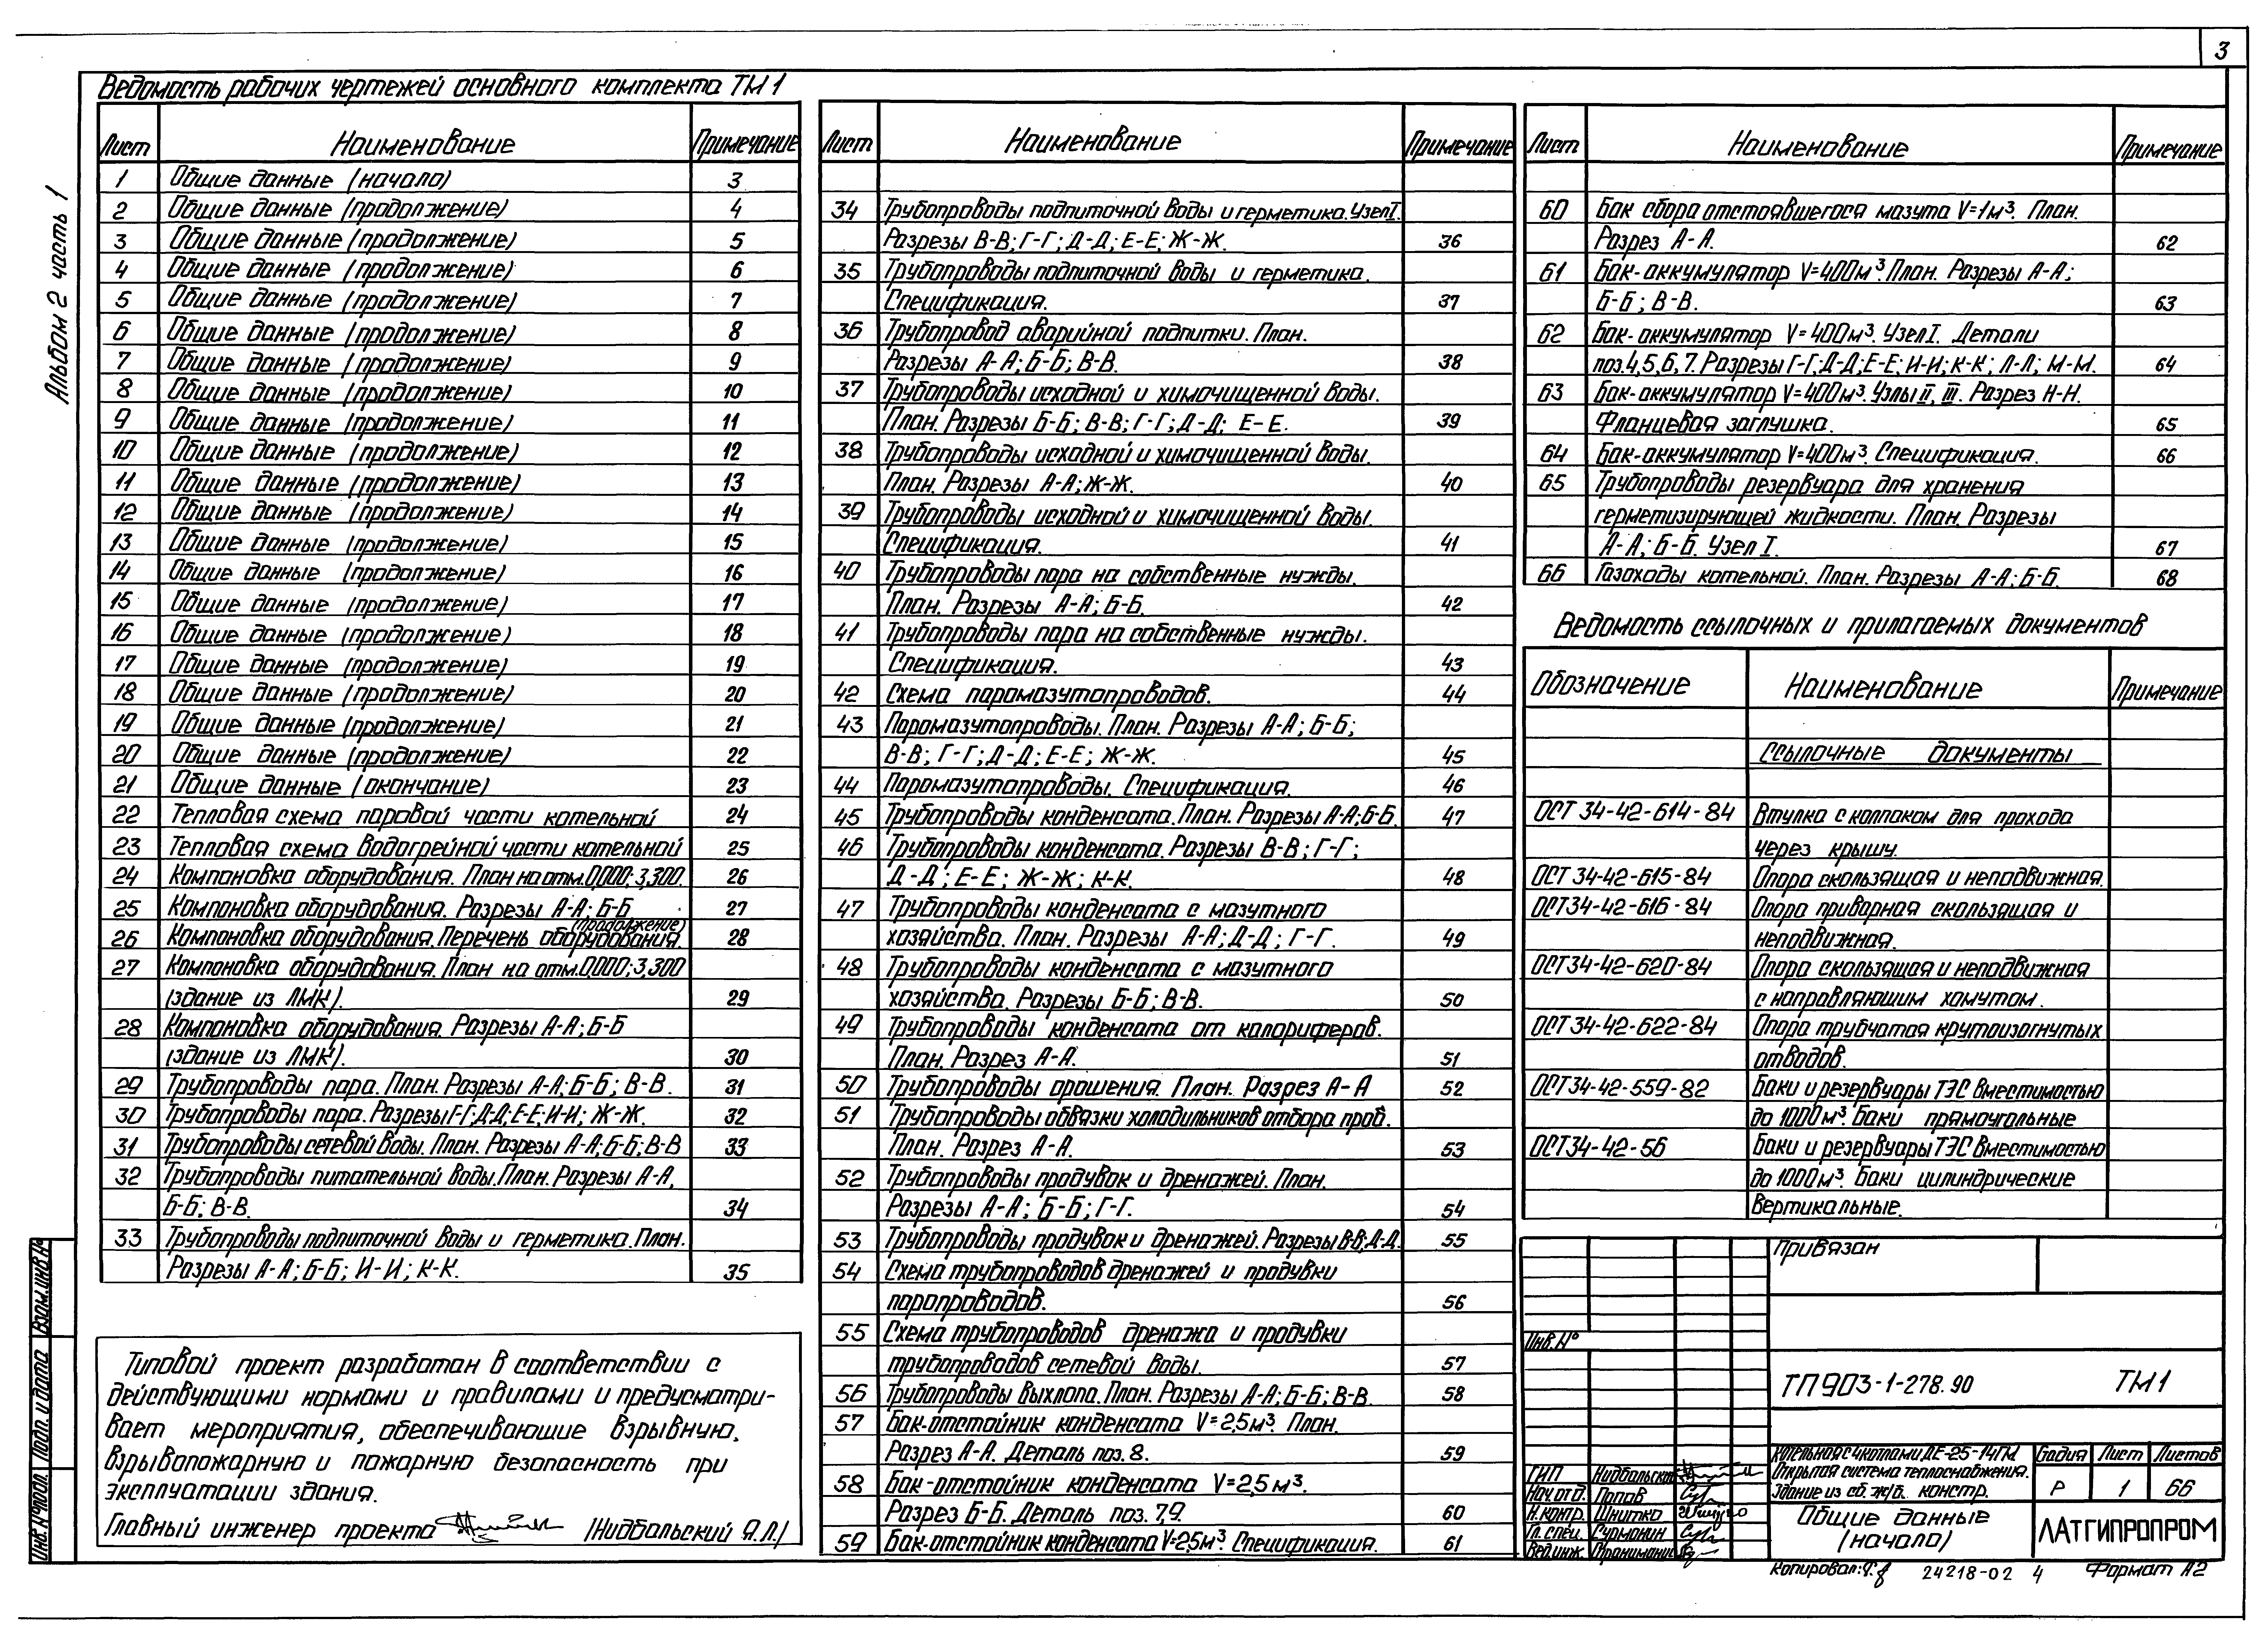 3
Альбом 2 часть 1
Ведомость рабочих чертежей основного комплекта ТМ1
Лист Наименование Примечание
1 Общие данные (начало) 3
2 Общие данные (продолжение) 4
3 Общие данные (продолжение) 5
4 Общие данные (продолжение) 6
5 Общие данные (продолжение) 7
6 Общие данные (продолжение) 8
7 Общие данные (продолжение) 9
8 Общие данные (продолжение) 10
9 Общие данные (продолжение) 11
10 Общие данные (продолжение) 12
11 Общие данные (продолжение) 13
12 Общие данные (продолжение) 14
13 Общие данные (продолжение) 15
14 Общие данные (продолжение) 16
15 Общие данные (продолжение) 17
16 Общие данные (продолжение) 18
17 Общие данные (продолжение) 19
18 Общие данные (продолжение) 20
19 Общие данные (продолжение) 21
20 Общие данные (продолжение) 22
21 Общие данные (окончание) 23
22 Тепловая схема паровой части котельной 24
23 Тепловая схема водогрейной части котельной 25
24 Компановка оборудования. План на отм.0,000; 3,300. 26
25 Компановка оборудования. Разрезы А-А; Б-Б 27
(продолжение)
26 Компановка оборудования. Перечень оборудования. 28
27 Компановка оборудования. План на отм.0,000; 3,300
(здание из ЛМК). 29
28 Компановка оборудования. Разрезы А-А; Б-Б
(здание из ЛМК). 30
29 Трубопроводы пара. План. Разрезы А-А; Б-Б; В-В. 31
30 Трубопроводы пара. Разрезы Г-Г; Д-Д; Е-Е; И-И; Ж-Ж. 32
31 Трубопроводы сетевой воды. План. Разрезы А-А; Б-Б; В-В 33
32 Трубопроводы питательной воды. План. Разрезы А-А,
Б-Б; В-В. 34
33 Трубопроводы подпиточной воды и герметика. План.
Разрезы А-А; Б-Б; И-И; К-К. 35
Типовой проект разработан в соответствии с
действующими нормами и правилами и предусматри-
вает мероприятия, обеспечивающие взрывную,
взрывопожарную и пожарную безопасность при
эксплуатации здания.
Главный инженер проекта (Нидбальский Я.Л.)
Лист Наименование Примечание
34 Трубопроводы подпиточной воды и герметика. Узел I.
Разрезы В-В; Г-Г; Д-Д; Е-Е; Ж-Ж. 36
35 Трубопроводы подпиточной воды и герметика.
Спецификация. 37
36 Трубопровод аварийной подпитки. План.
Разрезы А-А; Б-Б; В-В. 38
37 Трубопроводы исходной и химочищенной воды.
План. Разрезы Б-Б; В-В; Г-Г; Д-Д; Е-Е. 39
38 Трубопроводы исходной и химочищенной воды.
План. Разрезы А-А; Ж-Ж. 40
39 Трубопроводы исходной и химочищенной воды.
Спецификация. 41
40 Трубопроводы пара на собственные нужды.
План. Разрезы А-А; Б-Б. 42
41 Трубопроводы пара на собственные нужды.
Спецификация. 43
42 Схема паромазутопроводов. 44
43 Паромазутопроводы. План. Разрезы А-А; Б-Б;
В-В; Г-Г; Д-Д; Е-Е; Ж-Ж. 45
44 Паромазутопроводы. Спецификация. 46
45 Трубопроводы конденсата. План. Разрезы А-А; Б-Б. 47
46 Трубопроводы конденсата. Разрезы В-В; Г-Г;
Д-Д; Е-Е; Ж-Ж; К-К. 48
47 Трубопроводы конденсата с мазутного
хозяйства. План. Разрезы А-А; Д-Д; Г-Г. 49
48 Трубопроводы конденсата с мазутного
хозяйства. Разрезы Б-Б; В-В. 50
49 Трубопроводы конденсата от калориферов.
План. Разрез А-А. 51
50 Трубопроводы орошения. План. Разрез А-А 52
51 Трубопроводы обвязки холодильников отбора проб.
План. Разрез А-А. 53
52 Трубопроводы продувок и дренажей. План.
Разрезы А-А; Б-Б; Г-Г. 54
53 Трубопроводы продувок и дренажей. Разрезы В-В; Д-Д. 55
54 Схема трубопроводов дренажей и продувки
паропроводов. 56
55 Схема трубопроводов дренажа и продувки
трубопроводов сетевой воды. 57
56 Трубопроводы выхлопа. План. Разрезы А-А; Б-Б; В-В. 58
57 Бак-отстойник конденсата V=2,5м³. План.
Разрез А-А. Деталь поз. 8. 59
58 Бак-отстойник конденсата V=2,5м³.
Разрез Б-Б. Деталь поз. 7,9. 60
59 Бак-отстойник конденсата V=2,5м³. Спецификация. 61
Лист Наименование Примечание
60 Бак сбора отстоявшегося мазута V=1м³. План.
Разрез А-А. 62
61 Бак-аккумулятор V=400м³. План. Разрезы А-А;
Б-Б; В-В. 63
62 Бак-аккумулятор V=400м³. Узел I. Детали
поз.4,5,6,7. Разрезы Г-Г; Д-Д; Е-Е; И-И; К-К; Л-Л; М-М. 64
63 Бак-аккумулятор V=400м³. Узлы II, III. Разрез Н-Н.
Фланцевая заглушка. 65
64 Бак-аккумулятор V=400м³. Спецификация. 66
65 Трубопроводы резервуара для хранения
герметизирующей жидкости. План. Разрезы
А-А; Б-Б. Узел I. 67
66 Газоходы котельной. План. Разрезы А-А; Б-Б. 68
Ведомость ссылочных и прилагаемых документов
Обозначение Наименование Примечание
Ссылочные документы
ОСТ 34-42-614-84 Втулка с колпаком для прохода
через крышу.
ОСТ 34-42-615-84 Опора скользящая и неподвижная.
ОСТ 34-42-616-84 Опора приварная скользящая и
неподвижная.
ОСТ 34-42-620-84 Опора скользящая и неподвижная
с направляющим хомутом.
ОСТ 34-42-622-84 Опора трубчатая крутоизогнутых
отводов.
ОСТ 34-42-559-82 Баки и резервуары ТЭС вместимостью
до 1000м³. Баки прямоугольные
ОСТ 34-42-56 Баки и резервуары ТЭС вместимостью
до 1000м³. Баки цилиндрические
вертикальные.
Привязан
Инв.№
ТП 903-1-278.90 ТМ1
Котельная с 4 котлами ДЕ-25-14ГМ.
Открытая система теплоснабжения.
Здание из сб. ж/б. констр.
Стадия Лист Листов
Р 1 66
ГИП Нидбальский
Нач.отд. Попов
Н.контр. Шнитко
Гл.спец. Сурманин
Вед.инж.
Общие данные
(начало)
ЛАТГИПРОПРОМ
Копировал: 24218-02 4 Формат А2
Инв.№ подл. Подп. и дата Взам.инв.№